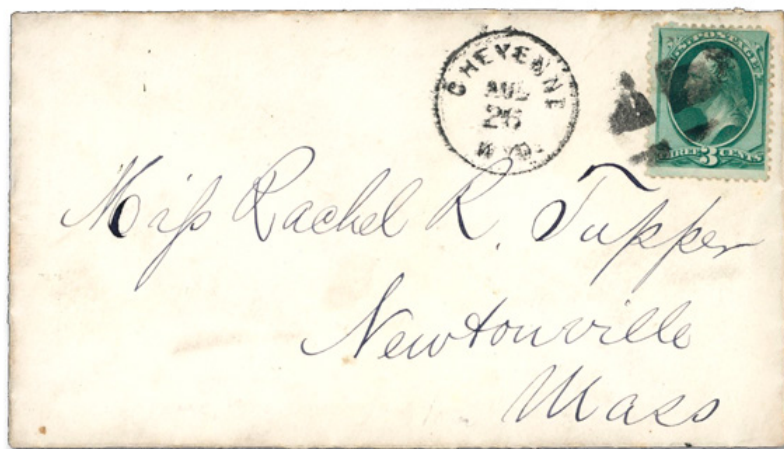 CHEYENNE
AUG
26
WYO.
U.S. POSTAGE
THREE 3 CENTS
Miss Rachel R. Tupper
Newtonville
Mass